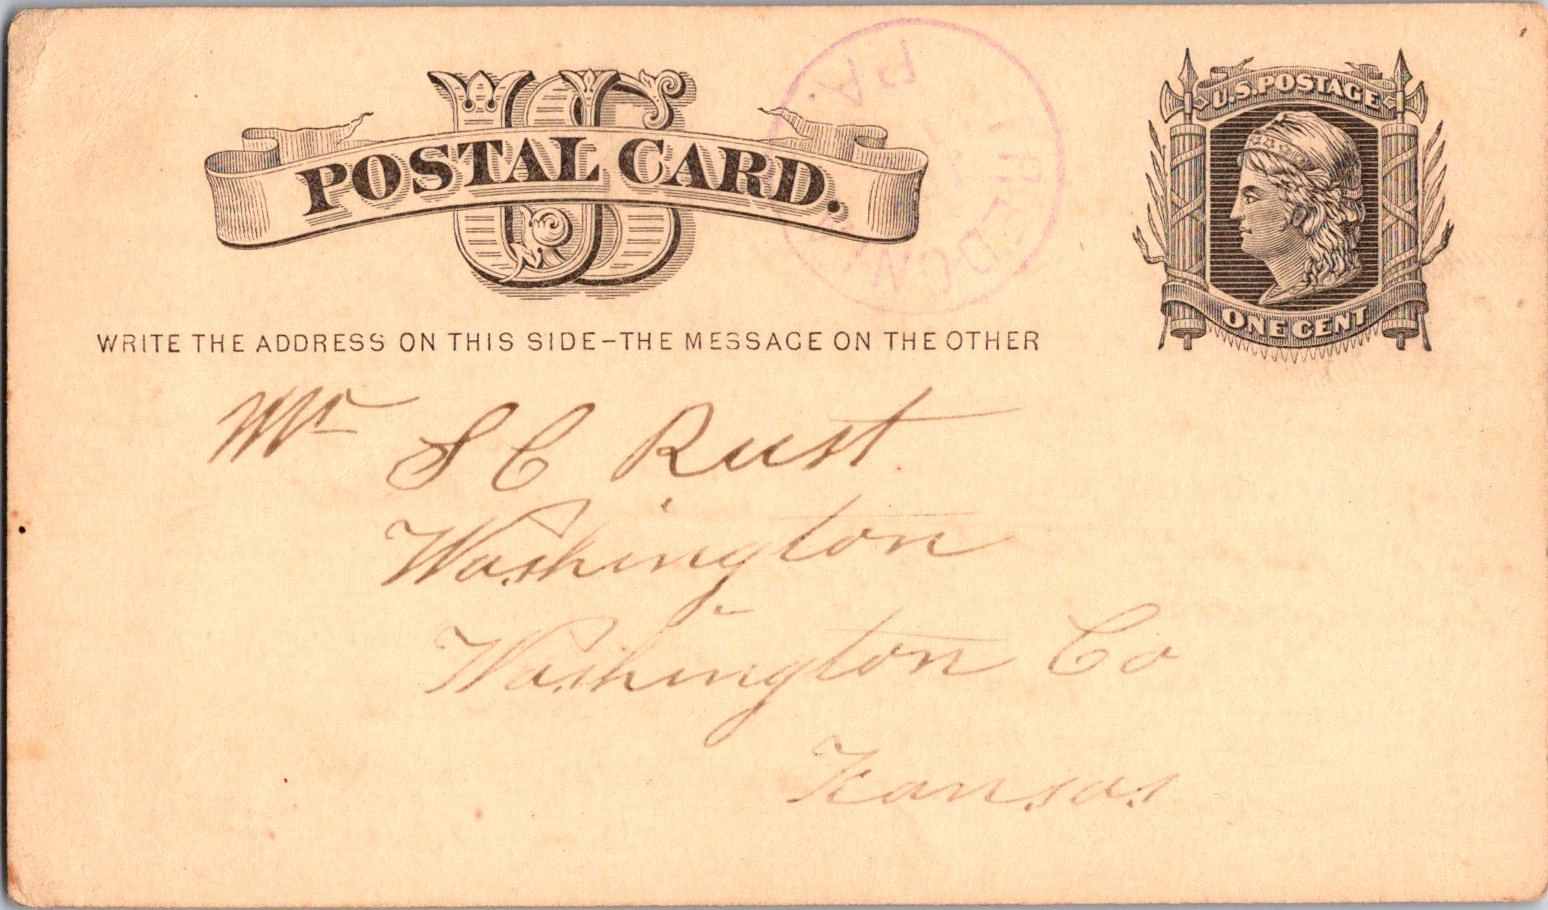 US
POSTAL CARD.
U.S. POSTAGE
ONE CENT
PA.
WRITE THE ADDRESS ON THIS SIDE–THE MESSAGE ON THE OTHER
Mr S C Rust
Washington
Washington Co
Kansas